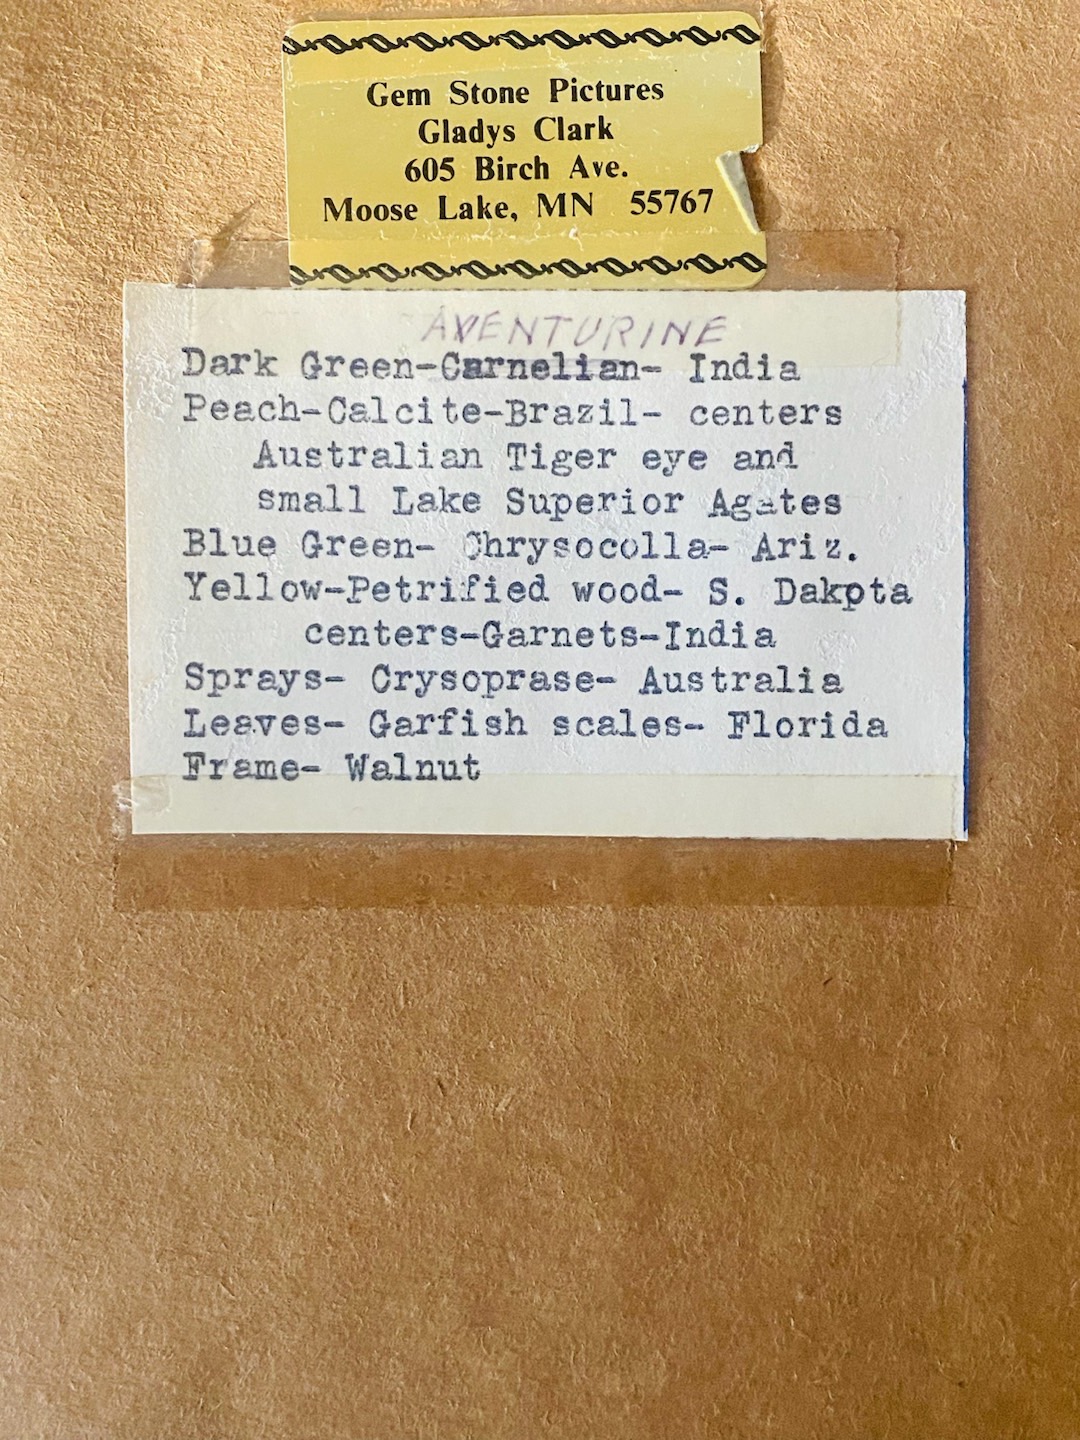 Gem Stone Pictures
Gladys Clark
605 Birch Ave.
Moose Lake, MN 55767
AVENTURINE
Dark Green-Carnelian- India
Peach-Calcite-Brazil- centers
Australian Tiger eye and
small Lake Superior Agates
Blue Green- Chrysocolla- Ariz.
Yellow-Petrified wood- S. Dakpta
centers-Garnets-India
Sprays- Crysoprase- Australia
Leaves- Garfish scales- Florida
Frame- Walnut